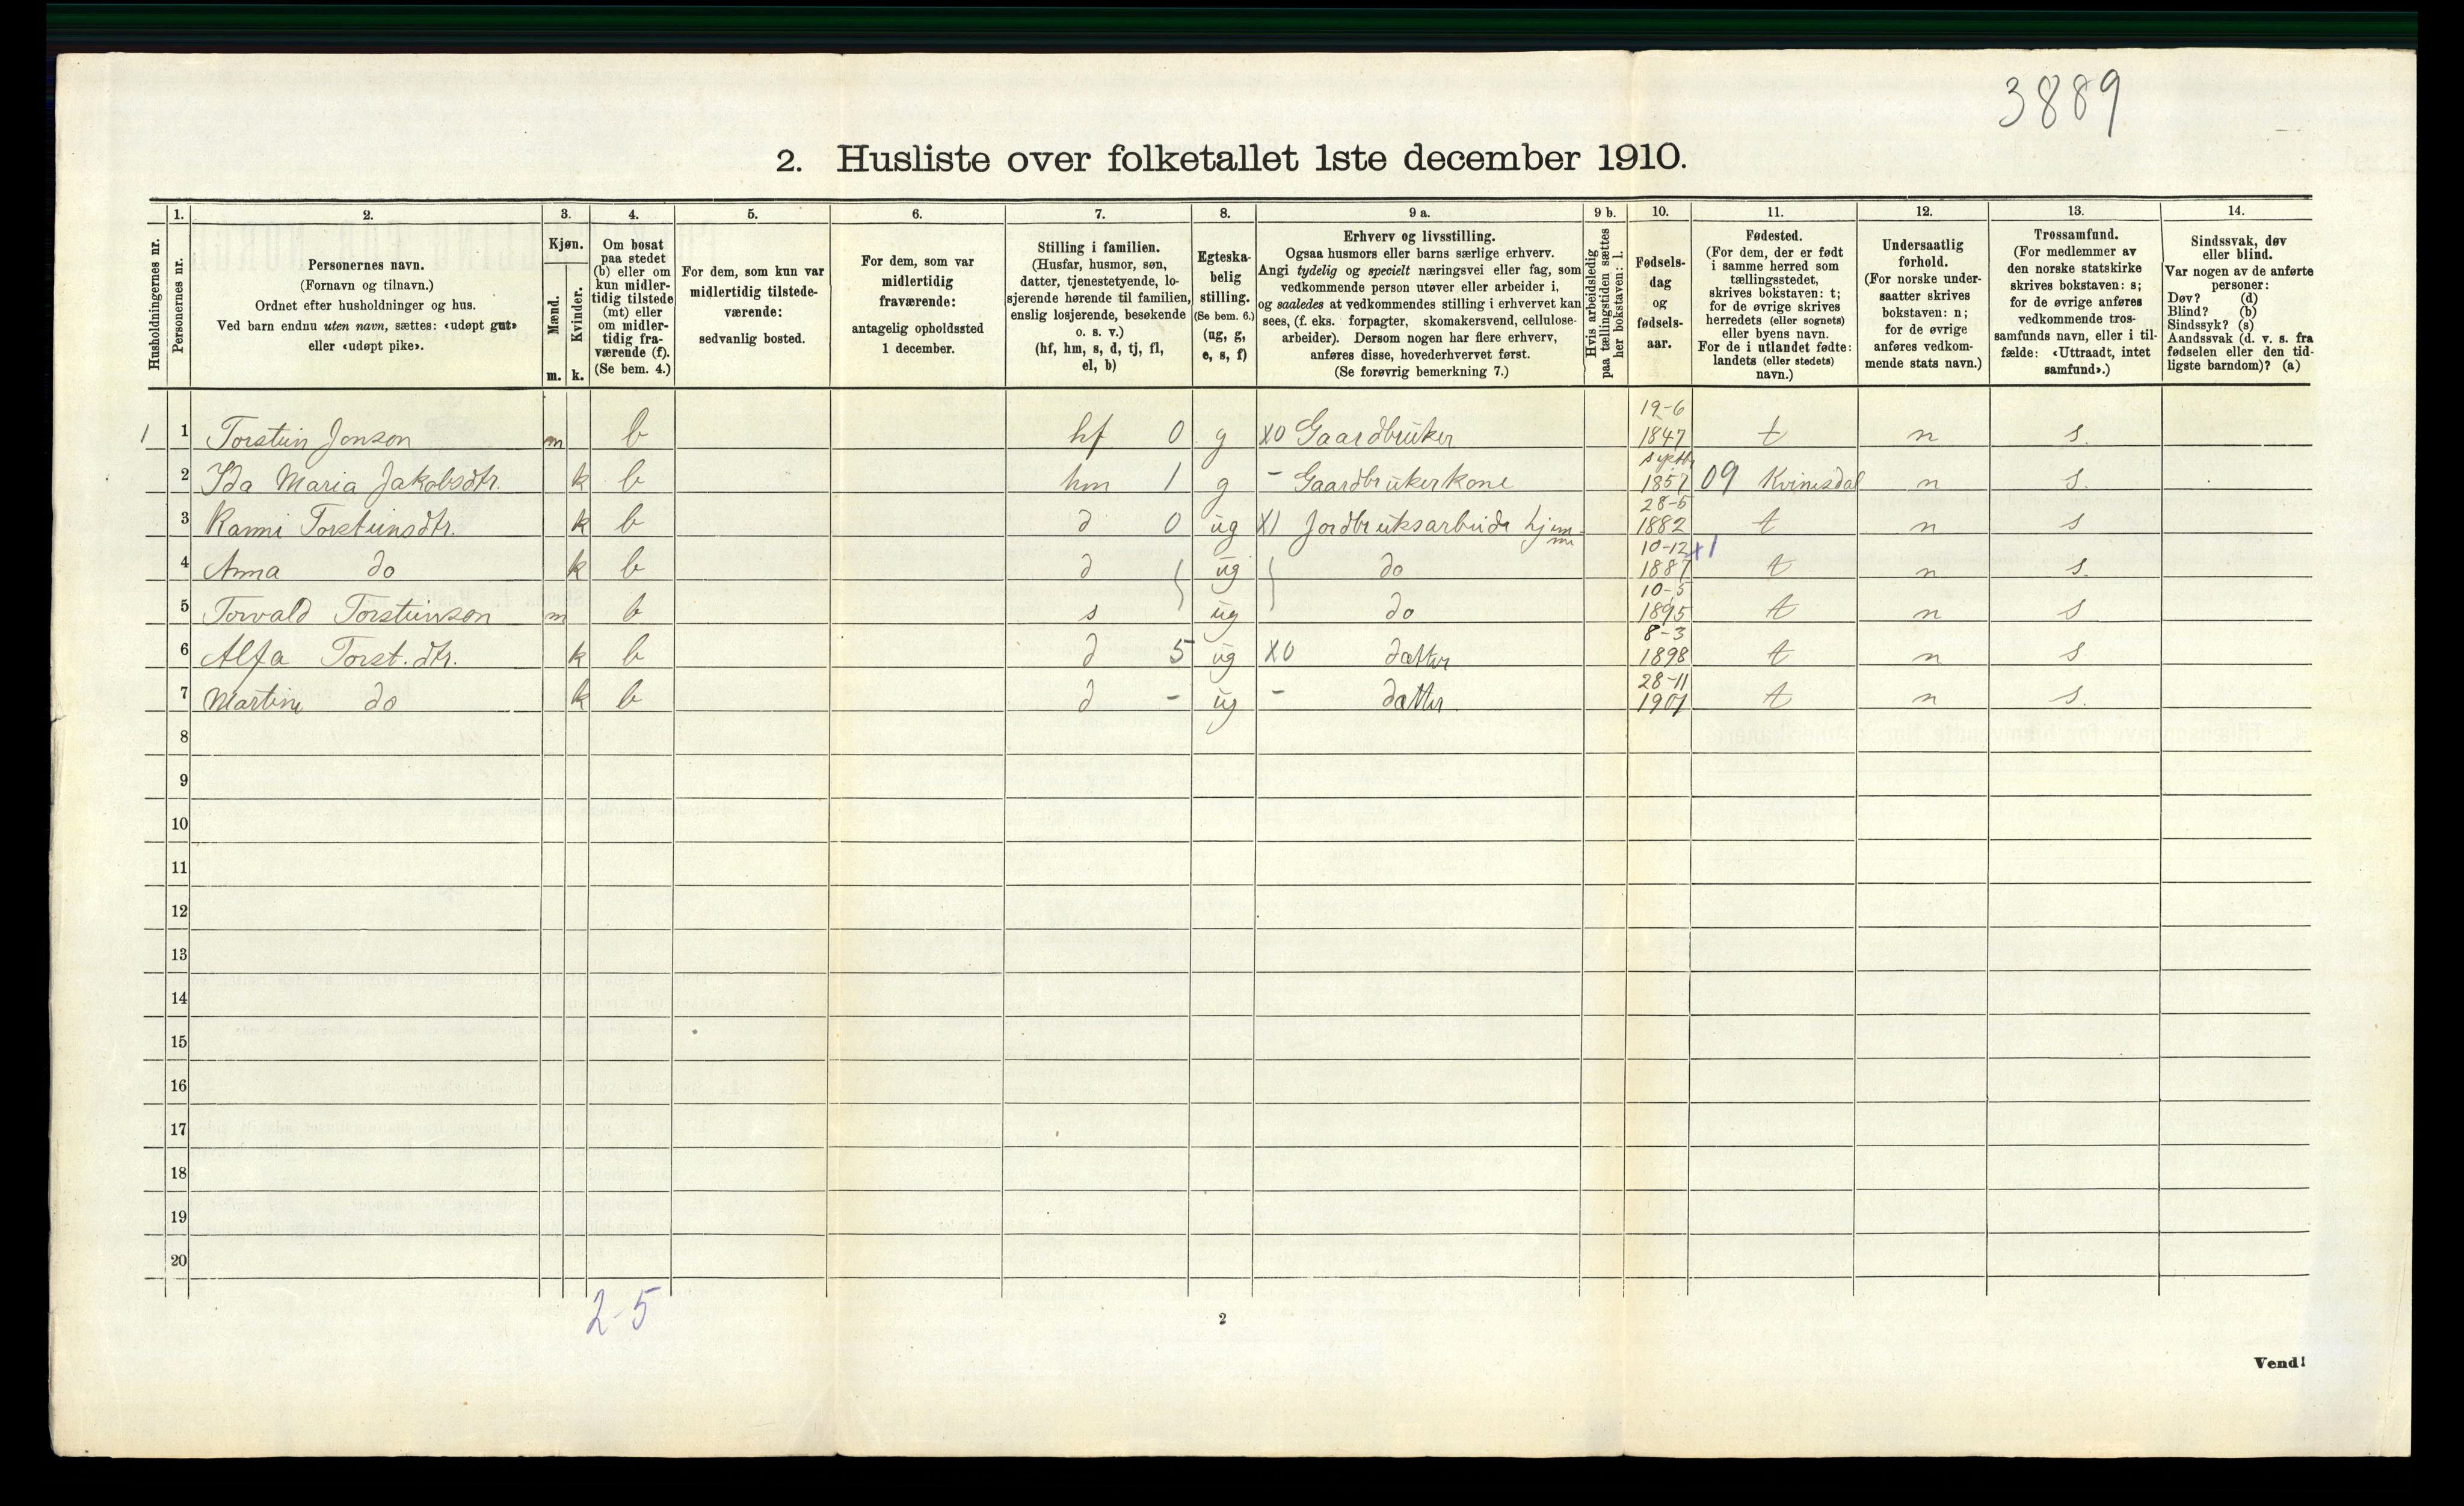 3889
2. Husliste over folketallet 1ste december 1910.
Husholdningernes nr.
1. Personernes nr.
2. Personernes navn.
(Fornavn og tilnavn.)
Ordnet efter husholdninger og hus.
Ved barn endnu uten navn, sættes: «udøpt gut»
eller «udøpt pike».
3. Kjøn.
Mænd. m.
Kvinder. k.
4. Om bosat
paa stedet
(b) eller om
kun midler-
tidig tilstede
(mt) eller
om midler-
tidig fra-
værende (f).
(Se bem. 4.)
5. For dem, som kun var
midlertidig tilstede-
værende:
sedvanlig bosted.
6. For dem, som var
midlertidig
fraværende:
antagelig opholdssted
1 december.
7. Stilling i familien.
(Husfar, husmor, søn,
datter, tjenestetyende, lo-
sjerende hørende til familien,
enslig losjerende, besøkende
o. s. v.)
(hf, hm, s, d, tj, fl,
el, b)
8. Egteska-
belig
stilling.
(Se bem. 6.)
(ug, g,
e, s, f)
9 a. Erhverv og livsstilling.
Ogsaa husmors eller barns særlige erhverv.
Angi tydelig og specielt næringsvei eller fag, som
vedkommende person utøver eller arbeider i,
og saaledes at vedkommendes stilling i erhvervet kan
sees, (f. eks. forpagter, skomakersvend, cellulose-
arbeider). Dersom nogen har flere erhverv,
anføres disse, hovederhvervet først.
(Se forøvrig bemerkning 7.)
9 b. Hvis arbeidsledig
paa tællingstiden sættes
her bokstaven: l.
10. Fødsels-
dag
og
fødsels-
aar.
11. Fødested.
(For dem, der er født
i samme herred som
tællingsstedet,
skrives bokstaven: t;
for de øvrige skrives
herredets (eller sognets)
eller byens navn.
For de i utlandet fødte:
landets (eller stedets)
navn.)
12. Undersaatlig
forhold.
(For norske under-
saatter skrives
bokstaven: n;
for de øvrige
anføres vedkom-
mende stats navn.)
13. Trossamfund.
(For medlemmer av
den norske statskirke
skrives bokstaven: s;
for de øvrige anføres
vedkommende tros-
samfunds navn, eller i til-
fælde: «Uttraadt, intet
samfund».)
14. Sindssvak, døv
eller blind.
Var nogen av de anførte
personer:
Døv? (d)
Blind? (b)
Sindssyk? (s)
Aandssvak (d. v. s. fra
fødselen eller den tid-
ligste barndom)? (a)
1 1 Torstein Jonson m b hf 0 g X0 Gaardbruker 19-6 1847 t n s.
2 Ida Maria Jakobsdtr. k b hm 1 g - Gaardbrukerkone septbr 1857 09 Kvinesdal n s.
3 Ranni Torsteinsdtr. k b d 0 ug X1 Jordbruksarbeide hjemme 28-5 1882 t n s
4 Anna do k b d ug do 10-12 1887 x1 t n s.
5 Torvald Torsteinson m b s ug do 10-5 1895 t n s
6 Alfa Torst.dtr. k b d 5 ug X0 datter 8-3 1898 t n s
7 Martine do k b d - ug - datter 28-11 1901 t n s.
8
9
10
11
12
13
14
15
16
17
18
19
20
2-5
2
Vend!